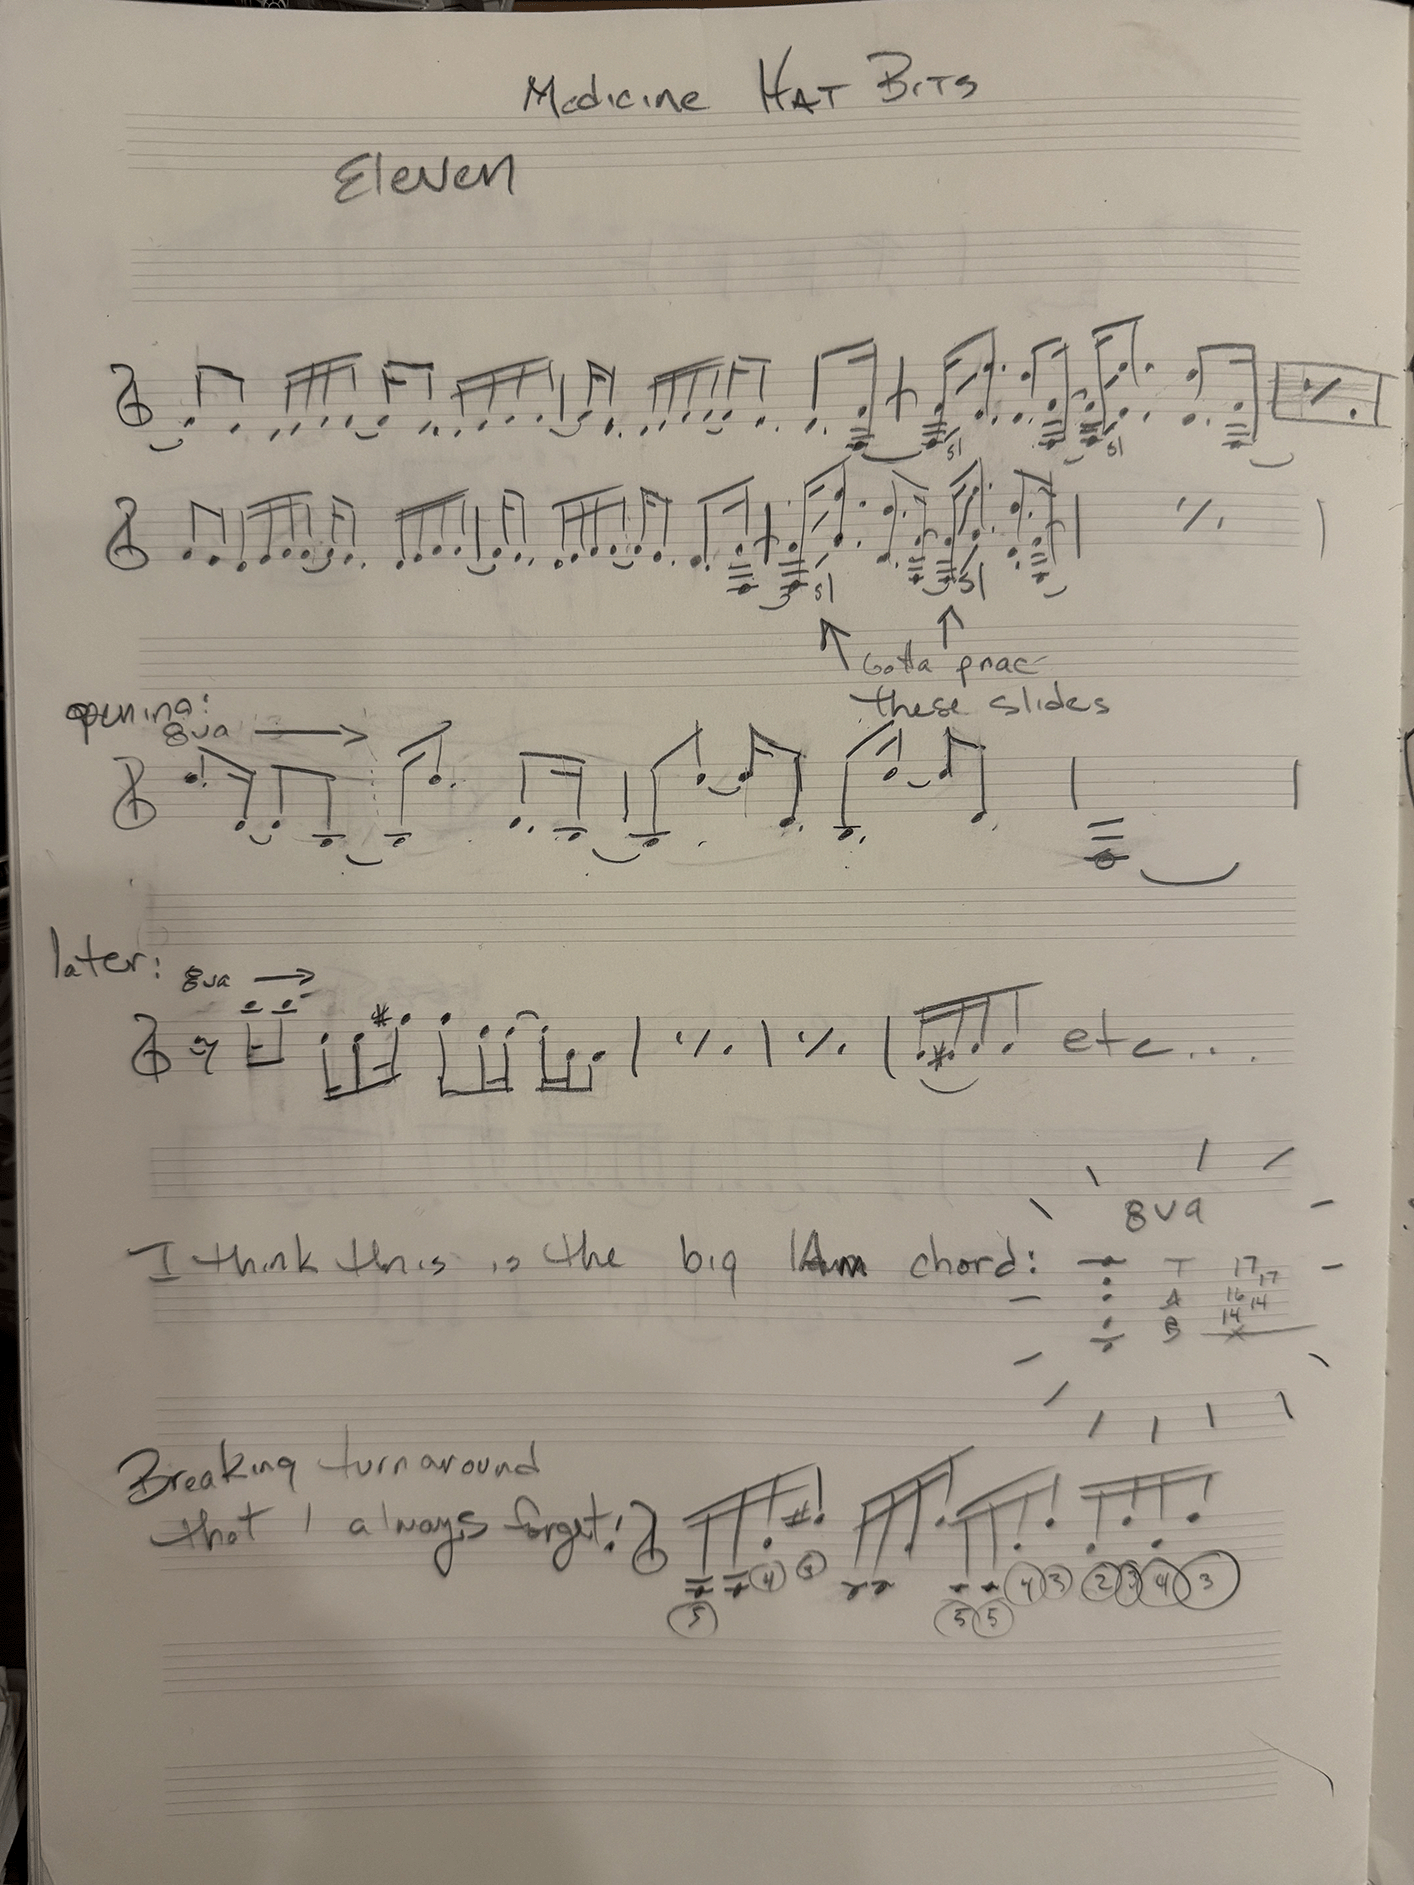 Medicine HAT BITS
Eleven
sl sl
sl sl
Gotta prac
these slides
opening:
8va
later:
8va
etc...
8va
I think this is the big Am chord:
T 17
17
A 16
14
B 14
x
Breaking turnaround
that I always forget!
4 4 4 3 2 3 4 3
5 5 5